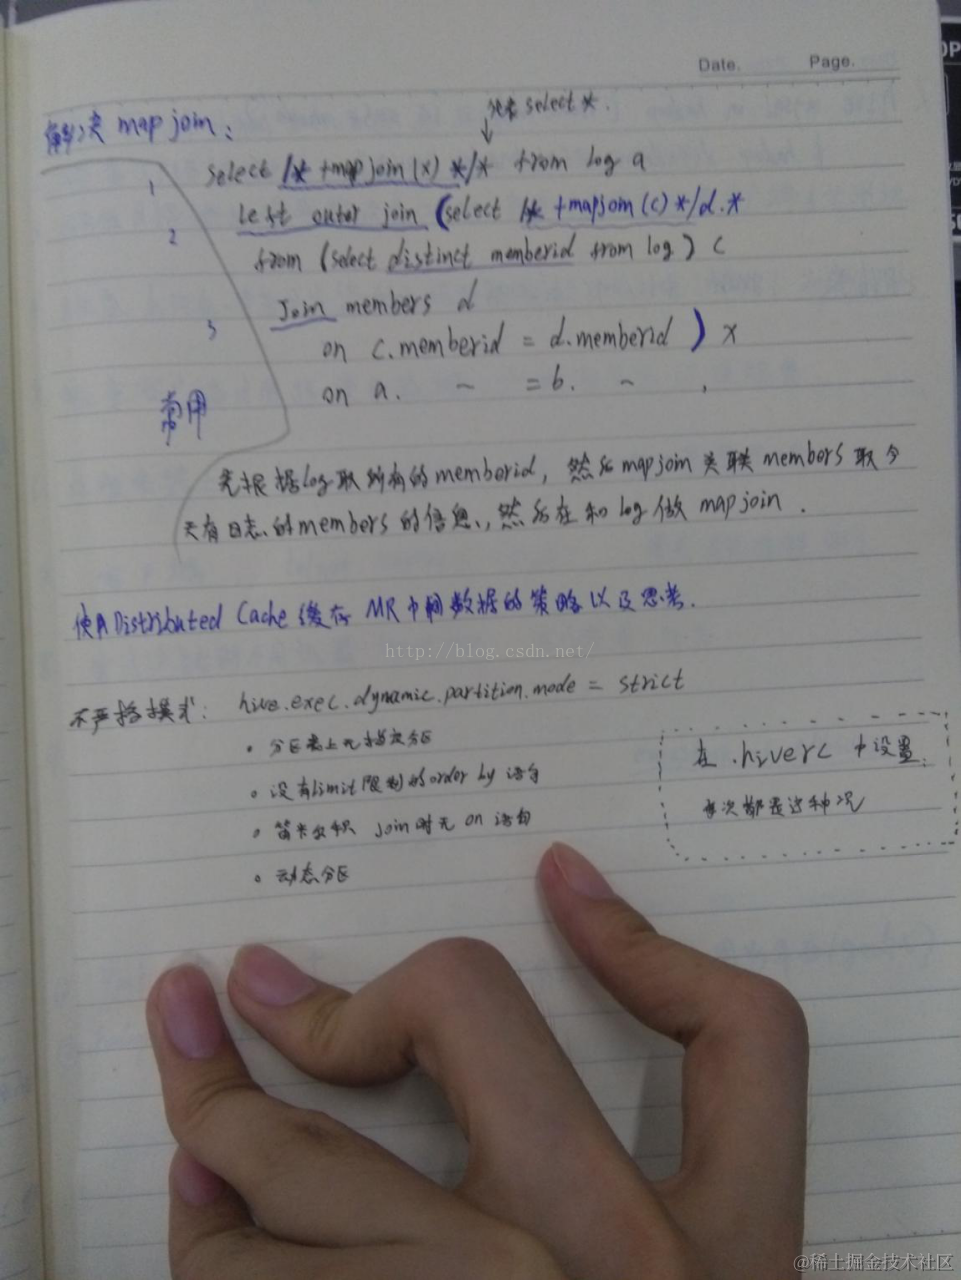 Date. Page.
解决 map join:
select *.
1 select /* +mapjoin(x) */* from log a
2 left outer join (select /* +mapjoin(c) */d.*
from (select distinct memberid from log) c
3 Join members d
on c.memberid = d.memberid ) x
on a. ~ = b. ~ ,
常用
先根据log取所有的memberid, 然后mapjoin关联members取今
天有日志的members的信息, 然后在和log做mapjoin.
使用Distributed Cache缓存MR中间数据的策略以及思考.
http://blog.csdn.net/
不严格模式: hive.exec.dynamic.partition.mode = strict
• 分区表上无指定分区
• 没有limit限制的order by语句
• 笛卡尔积 join时无on语句
• 动态分区
在.hiverc中设置:
每次都是这种况
@稀土掘金技术社区